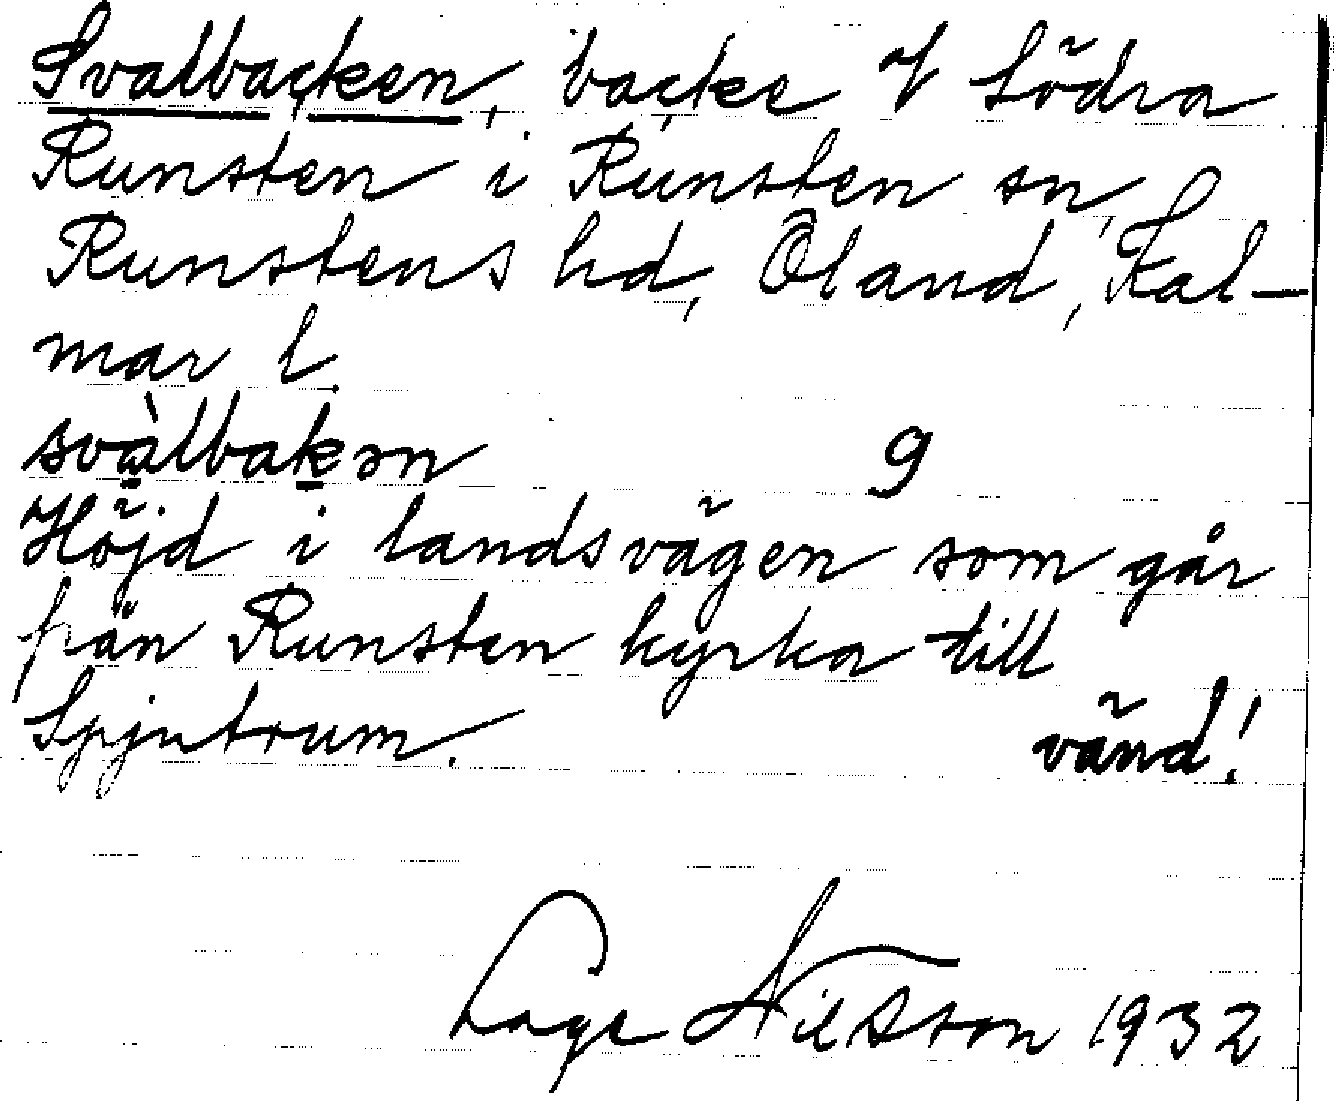 Svalbacken, backe i Södra
Runsten i Runsten sn,
Runstens hd, Öland, Kal-
mar l.
svàlbakən 9
Höjd i landsvägen som går
från Runsten kyrka till
Spjutrum. vänd!
Lage Nilsson 1932